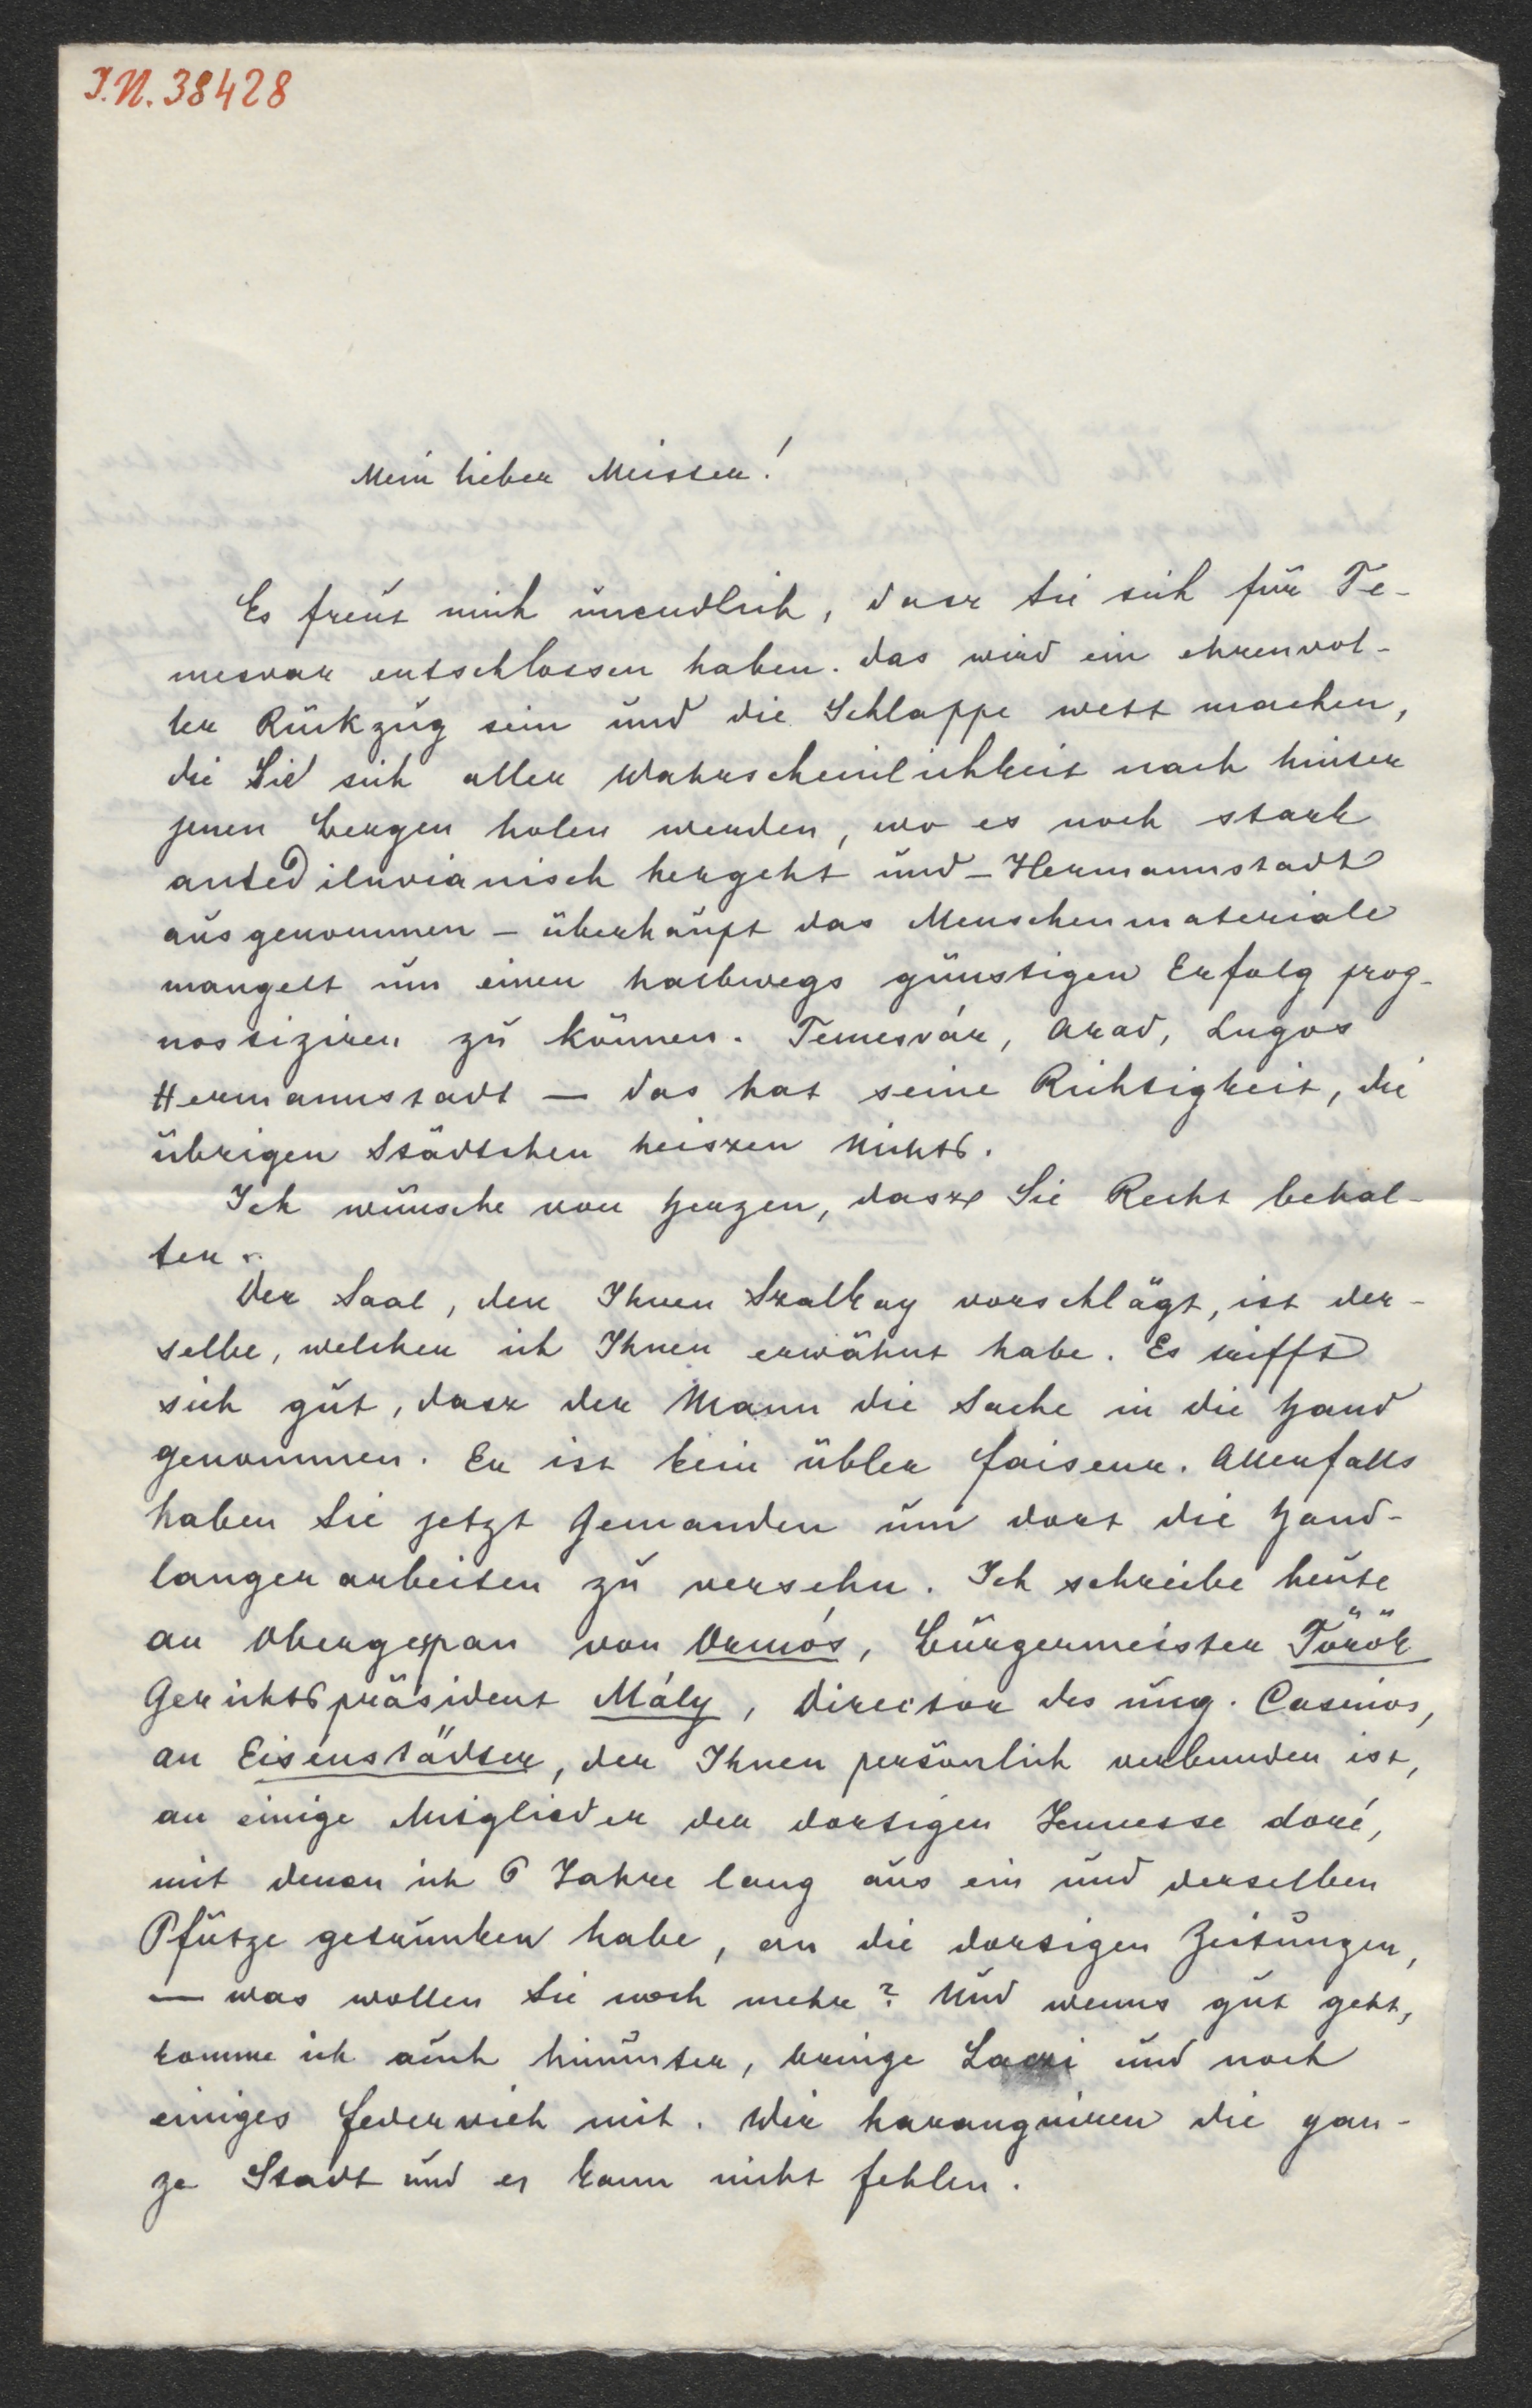 I.N. 38428
Mein lieber Meister!
Es freut mich unendlich, dasz Sie sich für Te-
mesvar entschlossen haben. Das wird ein ehrenvol-
ler Rückzug sein und die Schlappe wett machen,
die Sie sich aller Wahrscheinlichkeit nach hinter
jenen Bergen holen werden, wo es noch stark
antediluvianisch hergeht und – Hermannstadt
ausgenommen – überhaupt das Menschenmateriale
mangelt um einen halbwegs günstigen Erfolg prog-
nostiziren zu können. Temesvár, Arad, Lugos
Hermannstadt — das hat seine Richtigkeit, die
übrigen Städtchen heiszen Nichts.
Ich wünsche von Herzen, dasz Sie Recht behal-
ten.
Der Saal, den Ihnen Szalkay vorschlägt, ist der-
selbe, welchen ich Ihnen erwähnt habe. Es trifft
sich gut, dasz der Mann die Sache in die Hand
genommen. Er ist kein übler faiseur. Allenfalls
haben Sie jetzt Jemanden um dort die Hand-
langerarbeiten zu versehn. Ich schreibe heute
an Obergespan von Ormós, Bürgermeister Török
Gerichtspräsident Mály, Director des ung. Casinos,
an Eisenstädter, der Ihnen persönlich verbunden ist,
an einige Mitglieder der dortigen Jeunesse doré,
mit denen ich 6 Jahre lang aus ein und derselben
Pfütze getrunken habe, an die dortigen Zeitungen,
— was wollen Sie noch mehr? Und wenns gut geht,
komme ich auch hinunter, bringe Laczi und noch
einiges Federvieh mit. Wir haranguiren die gan-
ze Stadt und es kann nicht fehlen.